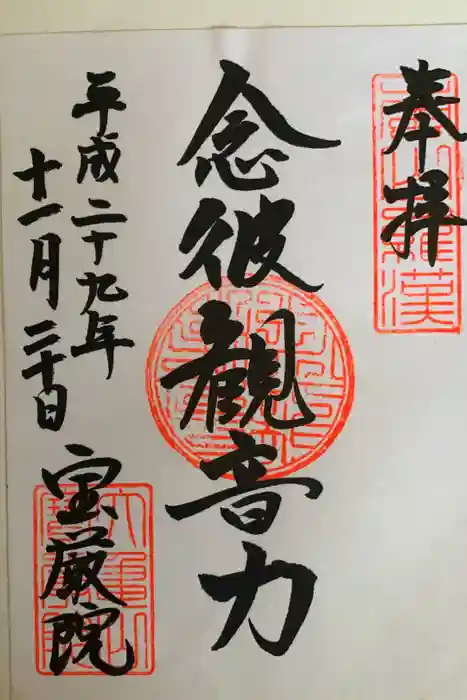 奉拝
念彼観音力
平成二十九年
十一月二十日
宝厳院